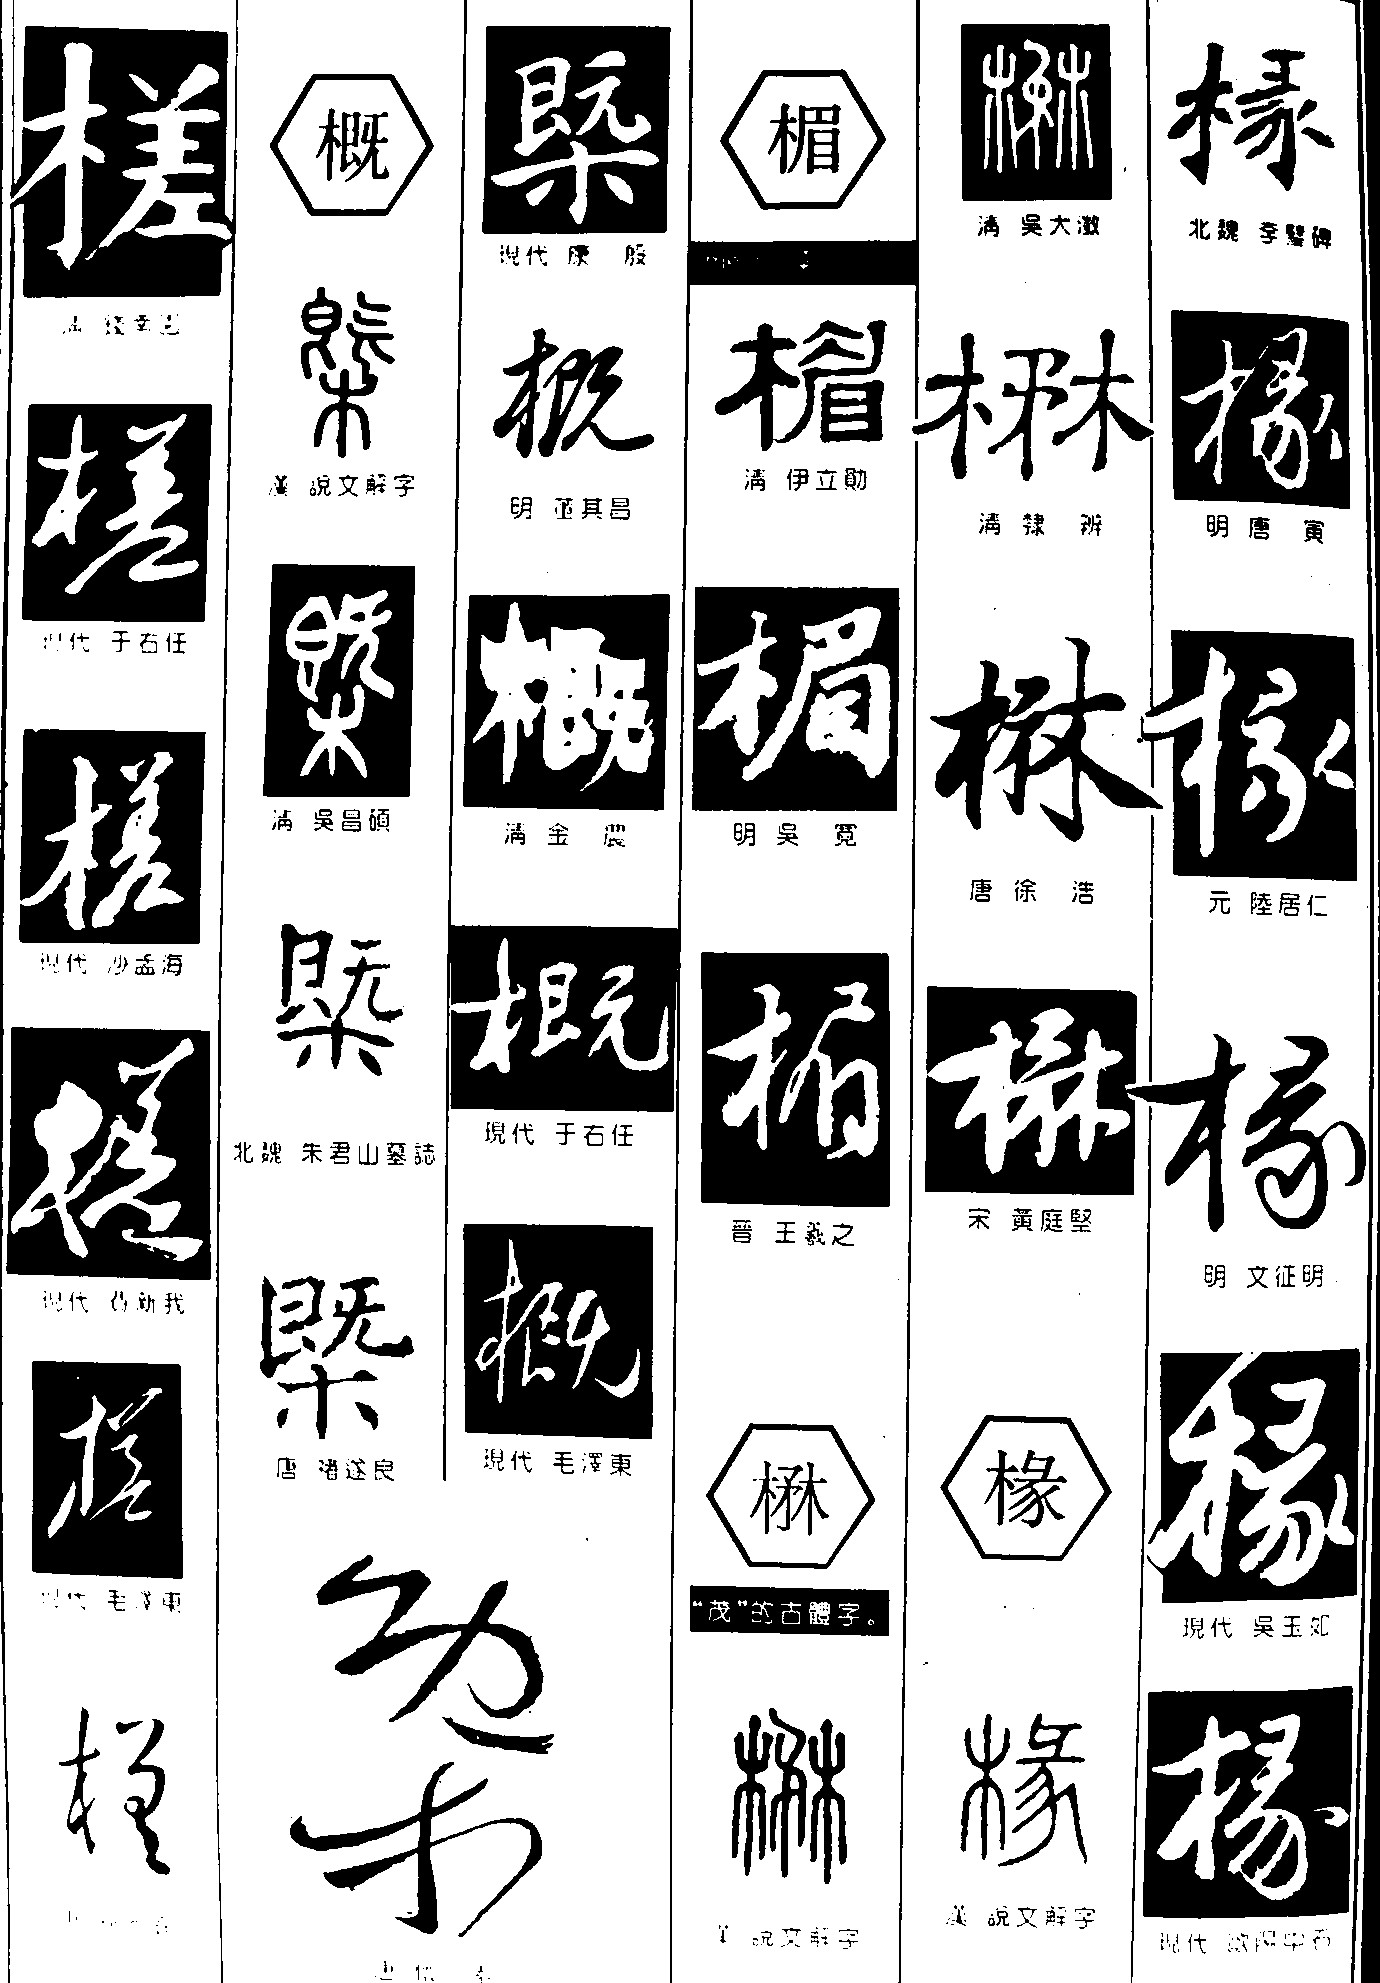 槎
槎
現代 于右任
槎
現代 沙孟海
槎
槎
現代 毛澤東
槎
概
槩
漢 說文解字
槩
清 吳昌碩
槩
北魏 朱君山墓誌
槩
唐 褚遂良
槩
槩
現代 康 殷
概
明 董其昌
概
清 金 農
概
現代 于右任
概
現代 毛澤東
楣
楣
清 伊立勛
楣
明 吳 寬
楣
晉 王羲之
楙
“茂”的古體字。
楙
漢 說文解字
楙
清 吳大澂
楙
清 隸 辨
楙
唐 徐 浩
楙
宋 黃庭堅
椽
椽
漢 說文解字
椽
北魏 李璧碑
椽
明 唐 寅
椽
元 陸居仁
椽
明 文征明
椽
現代 吳玉如
椽
現代 歐陽中石